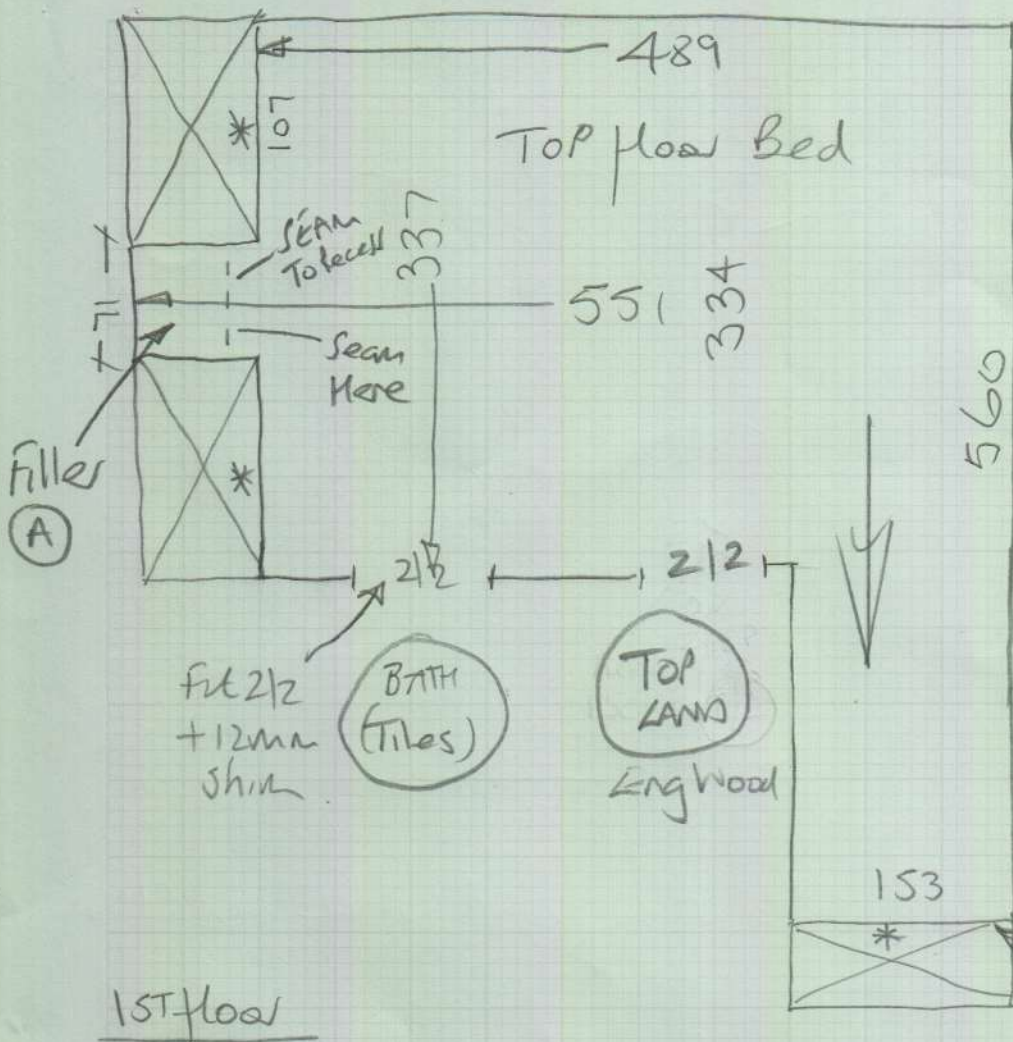 489
107
Top floor Bed
SEAM
To Recess
337
551
334
71
Seam
Here
560
Filler
A
2/2
2/2
Fit 2/2
+12mm
Shim
BATH
(Tiles)
TOP
LAND
Eng Wood
153
1ST floor